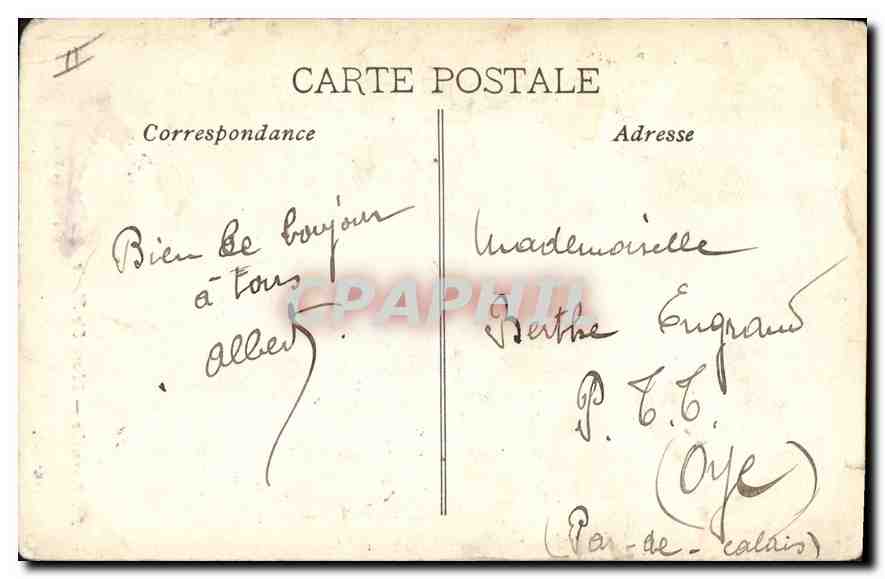 II
CARTE POSTALE
Correspondance
Bien le bonjour
à tous
Albert
Adresse
Mademoiselle
Berthe Engrand
P.T.T.
(Oye)
(Pas-de-Calais)
CPAPHIL